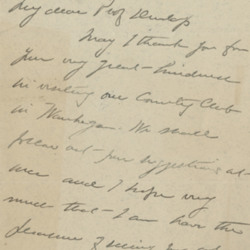 My dear Prof Dunlap
May I thank you for
your very great kindness
in visiting our Country Club
in Waukegan. We shall
follow out your suggestions at
once and I hope very
much that I can have the
pleasure of seeing you